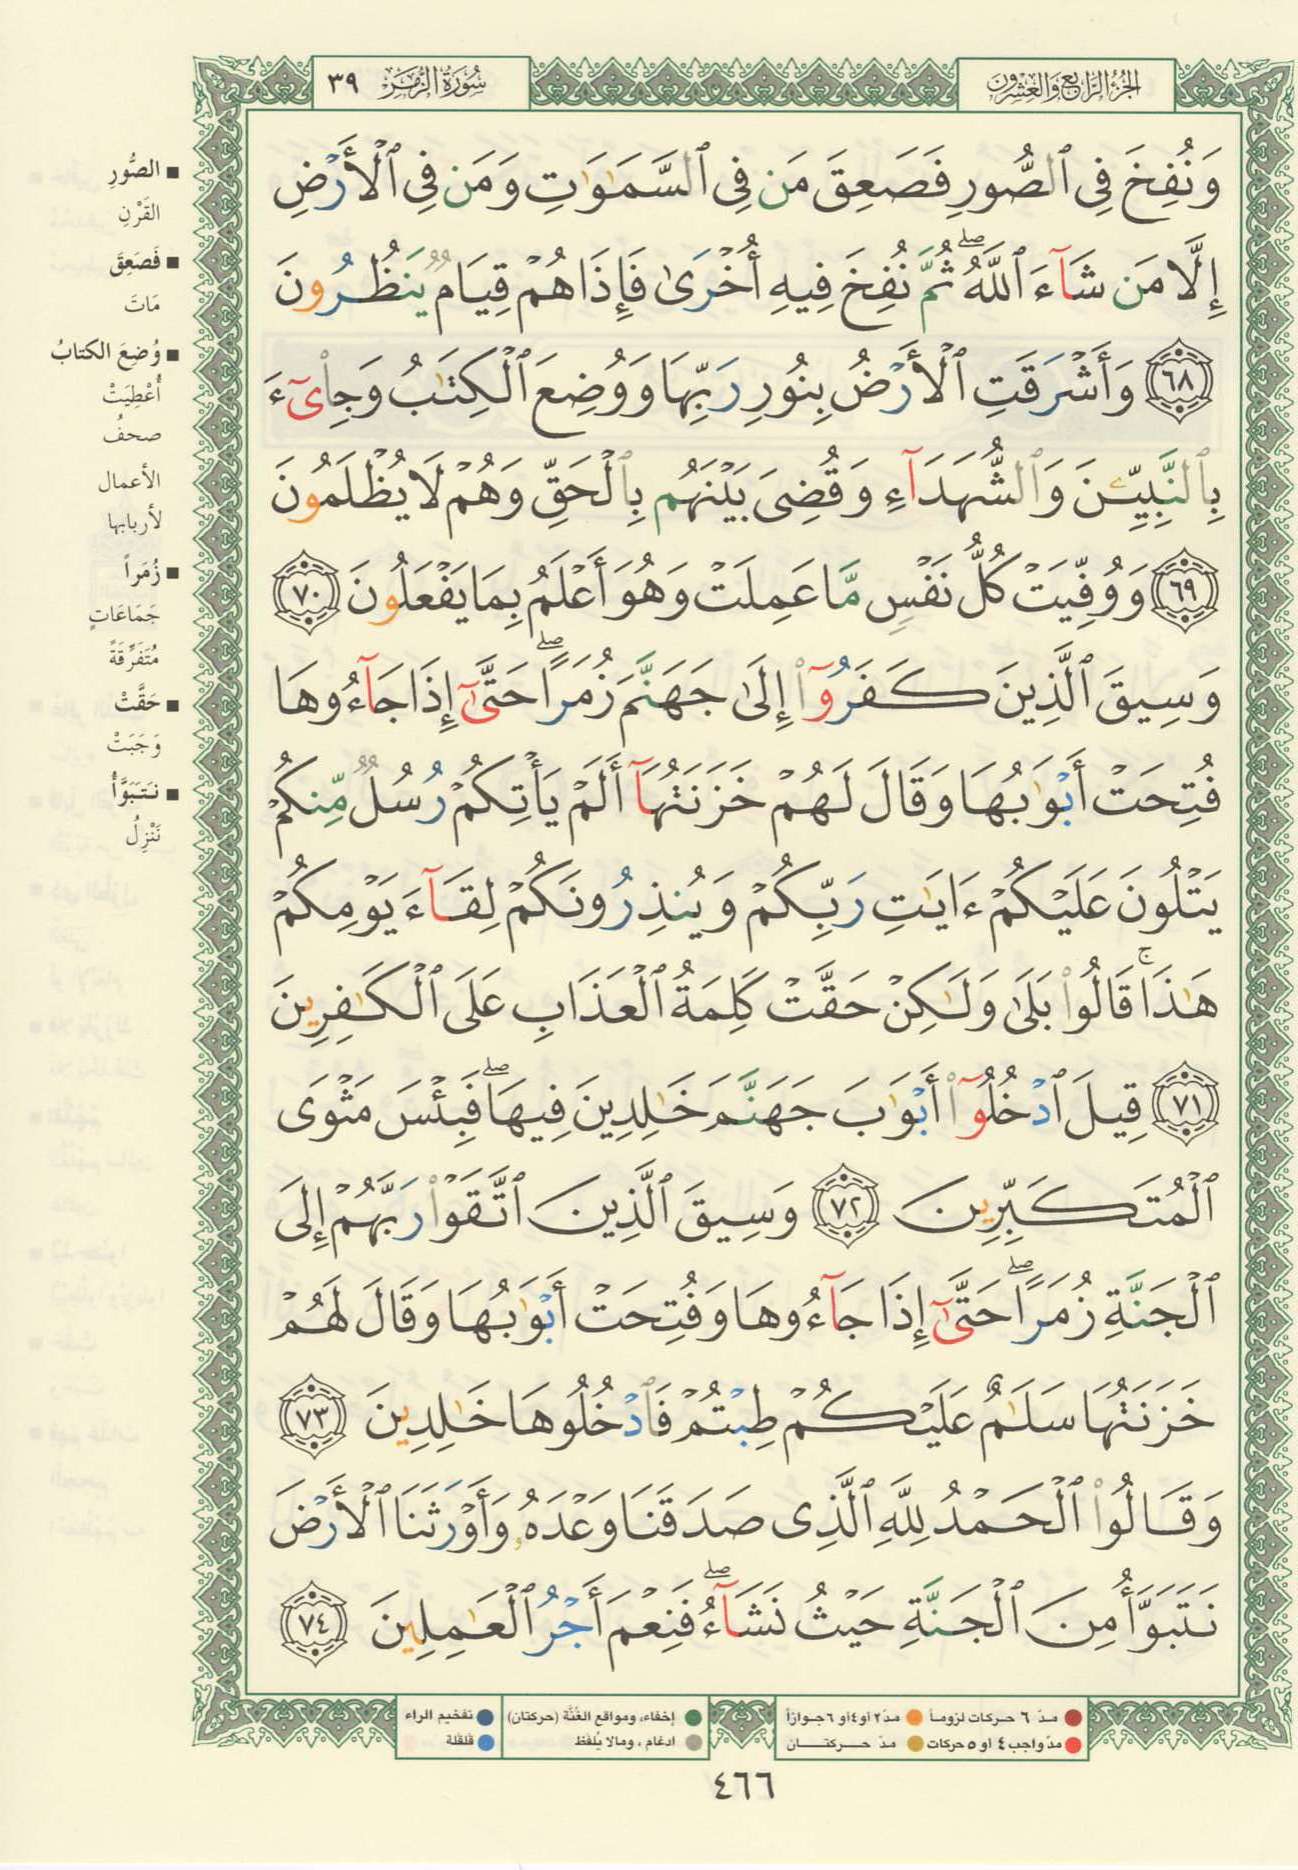 الجزء الرابع والعشرون
سورة الزمر ٣٩
وَنُفِخَ فِي ٱلصُّورِ فَصَعِقَ مَن فِي ٱلسَّمَٰوَٰتِ وَمَن فِي ٱلْأَرْضِ
إِلَّا مَن شَآءَ ٱللَّهُ ۖ ثُمَّ نُفِخَ فِيهِ أُخْرَىٰ فَإِذَا هُمْ قِيَامٌ يَنظُرُونَ
٦٨ وَأَشْرَقَتِ ٱلْأَرْضُ بِنُورِ رَبِّهَا وَوُضِعَ ٱلْكِتَٰبُ وَجِا۟ىٓءَ
بِٱلنَّبِيِّـۧنَ وَٱلشُّهَدَآءِ وَقُضِىَ بَيْنَهُم بِٱلْحَقِّ وَهُمْ لَا يُظْلَمُونَ
٦٩ وَوُفِّيَتْ كُلُّ نَفْسٍ مَّا عَمِلَتْ وَهُوَ أَعْلَمُ بِمَا يَفْعَلُونَ ٧٠
وَسِيقَ ٱلَّذِينَ كَفَرُوٓا۟ إِلَىٰ جَهَنَّمَ زُمَرًا ۖ حَتَّىٰٓ إِذَا جَآءُوهَا
فُتِحَتْ أَبْوَٰبُهَا وَقَالَ لَهُمْ خَزَنَتُهَآ أَلَمْ يَأْتِكُمْ رُسُلٌ مِّنكُمْ
يَتْلُونَ عَلَيْكُمْ ءَايَٰتِ رَبِّكُمْ وَيُنذِرُونَكُمْ لِقَآءَ يَوْمِكُمْ
هَٰذَا ۚ قَالُوا۟ بَلَىٰ وَلَٰكِنْ حَقَّتْ كَلِمَةُ ٱلْعَذَابِ عَلَى ٱلْكَٰفِرِينَ
٧١ قِيلَ ٱدْخُلُوٓا۟ أَبْوَٰبَ جَهَنَّمَ خَٰلِدِينَ فِيهَا ۖ فَبِئْسَ مَثْوَى
ٱلْمُتَكَبِّرِينَ ٧٢ وَسِيقَ ٱلَّذِينَ ٱتَّقَوْا۟ رَبَّهُمْ إِلَى
ٱلْجَنَّةِ زُمَرًا ۖ حَتَّىٰٓ إِذَا جَآءُوهَا وَفُتِحَتْ أَبْوَٰبُهَا وَقَالَ لَهُمْ
خَزَنَتُهَا سَلَٰمٌ عَلَيْكُمْ طِبْتُمْ فَٱدْخُلُوهَا خَٰلِدِينَ ٧٣
وَقَالُوا۟ ٱلْحَمْدُ لِلَّهِ ٱلَّذِى صَدَقَنَا وَعْدَهُۥ وَأَوْرَثَنَا ٱلْأَرْضَ
نَتَبَوَّأُ مِنَ ٱلْجَنَّةِ حَيْثُ نَشَآءُ ۖ فَنِعْمَ أَجْرُ ٱلْعَٰمِلِينَ ٧٤
الصُّورِ
القَرْنِ
فَصَعِقَ
مَاتَ
وُضِعَ الكتابُ
أُعْطِيَتْ
صحفُ
الأعمال
لأربابها
زُمَراً
جَمَاعَاتٍ
مُتَفَرِّقَةً
حَقَّتْ
وَجَبَتْ
نَتَبَوَّأُ
نَنْزِلُ
مدّ ٦ حركات لزوماً مدّ ٢ أو ٤ أو ٦ جوازاً
مدّ واجب ٤ أو ٥ حركات مدّ حركتان
إخفاء، ومواقع الغُنَّة (حركتان)
ادغام، ومالا يُلفَظ
تفخيم الراء
قلقلة
٤٦٦